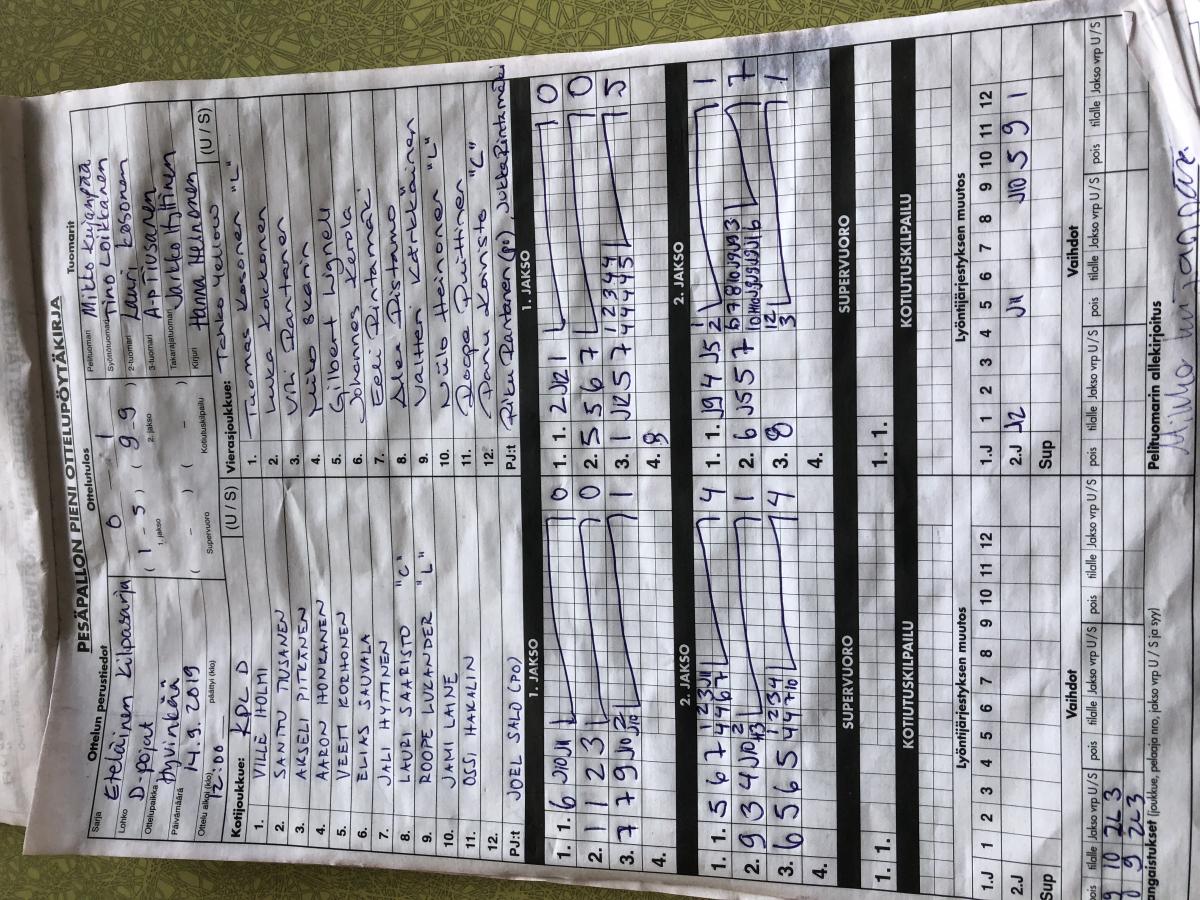 PESÄPALLON PIENI OTTELUPÖYTÄKIRJA
Ottelun perustiedot
Ottelutulos
Tuomarit
Sarja
Eteläinen kilpasarja
0 - 1
Pelituomari Mikko Kujanpää
Lohko D-pojat
( 1 - 5 ) ( 9 - 9 )
Syöttötuomari Timo Loikkanen
Ottelupaikka Hyvinkää
1. jakso 2. jakso
2-tuomari Lauri Kosonen
Päivämäärä 14.9.2019
3-tuomari A-P Tiusanen
Ottelu alkoi (klo) 12:00 päättyi (klo)
( - ) ( - )
Takarajatuomari Jarkko Hyttinen
Supervuoro Kotiutuskilpailu
Kirjuri Hanna Heinonen
Kotijoukkue: KPL D (U / S)
1. VILLE HOLMI
2. SANTTU TUSANEN
3. AKSELI PITKÄNEN
4. AARON HONKANEN
5. VEETI KORHONEN
6. ELIAS SAUVALA
7. JALI HYTTINEN
8. LAURI SAARISTO "C"
9. ROOPE LUKANDER "L"
10. JAMI LAINE
11. OSSI HAKALIN
12.
PJ:t JOEL SALO (PO)
Vierasjoukkue: Tahko Yellow (U / S)
1. Tuomas Kosonen "L"
2. Luka Kokkonen
3. Vili Rantanen
4. Milo Skarin
5. Gilbert Lignell
6. Johannes Kerola
7. Eeli Rintamäki
8. Alex Ristamo
9. Valtteri Kärkkäinen
10. Niilo Heinonen "L"
11. Roope Ruittinen
12. Panu Karisto "C"
PJ:t Riku Rantanen (po), Jukka Rintamäki
1. JAKSO
1. 1. 6 J10 J11 0
2. 1 1 2 3 0
3. 7 7 9 J10 1
4.
1. JAKSO
1. 1. 2 J12 1 0
2. 5 5 6 7 0
3. 1 J12 5 7 5
4. 8
2. JAKSO
1. 1. 5 6 7 4
2. 9 3 4 J10 1
3. 6 5 6 5 4
4.
2. JAKSO
1. 1. J9 4 J5 2 1
2. 6 J5 5 7 7
3. 8 1
4.
SUPERVUORO
1. 1.
SUPERVUORO
1. 1.
KOTIUTUSKILPAILU
KOTIUTUSKILPAILU
Lyöntijärjestyksen muutos
1.J 1 2 3 4 5 6 7 8 9 10 11 12
2.J
Sup
Lyöntijärjestyksen muutos
1.J 1 2 3 4 5 6 7 8 9 10 11 12
2.J J12 J11 J10 5 9 1
Sup
Vaihdot
pois tilalle Jakso vrp U / S pois tilalle Jakso vrp U / S pois tilalle Jakso vrp U / S
9 10 2L 3
0 9 2L 3
Vaihdot
pois tilalle Jakso vrp U / S pois tilalle Jakso vrp U / S pois tilalle Jakso vrp U / S
angaistukset (joukkue, pelaaja nro, jakso vrp U / S ja syy)
Pelituomarin allekirjoitus
Mikko Kujanpää